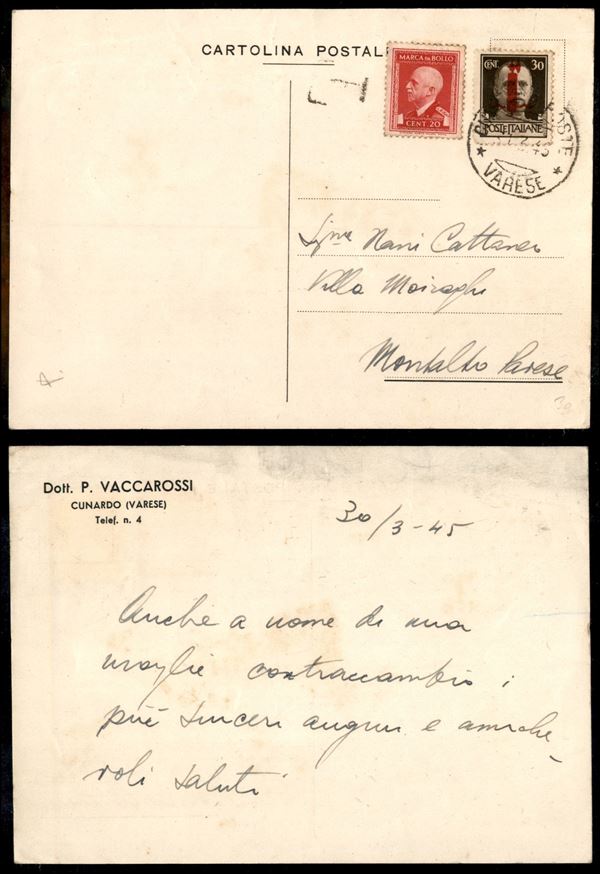 CARTOLINA POSTALE
MARCA DA BOLLO
CENT. 20
CENT. 30
POSTE ITALIANE
T
POSTE
VARESE
Nani Cattaneo
Villa Moiraghi
Montalto Pavese
30
Dott. P. VACCAROSSI
CUNARDO (VARESE)
Telef. n. 4
30/3-45
Anche a nome di mia
moglie contraccambio i
più sinceri auguri e amiche-
voli saluti